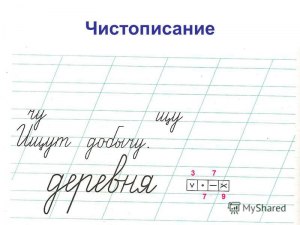 Чистописание
чу щу
Ищут добычу.
деревня
3 7
v • – ×
7 9
MyShared